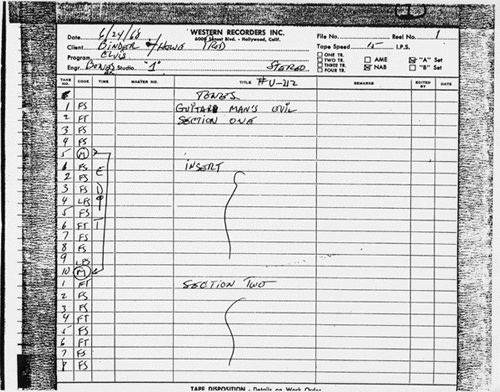 WESTERN RECORDERS INC.
6000 Sunset Blvd. - Hollywood, Calif.
Date 6/24/68
File No. Reel No. 1
Client BINDER / HOWE PROD
Tape Speed 15 I.P.S.
Program ELVIS
ONE TR.
TWO TR. AME "A" Set
THREE TR. NAB "B" Set
FOUR TR.
Engr. Studio "1" STEREO
TAKE NO. CODE TIME MASTER NO. TITLE #U-212 REMARKS EDITED BY DATE
TONES
1 FS GUITAR MAN'S EVIL
2 FT SECTION ONE
3 FS
4 FS
5 M
1 FS INSERT
2 FS E
3 FS D
4 LFS I
5 FS
6 FT T
7 FS
8 FS
9 LFS
10 M
1 FT SECTION TWO
2 FS
3 FS
4 FT
5 FS
6 FT
7 FS
8 FS
TAPE DISPOSITION - Details on Work Order